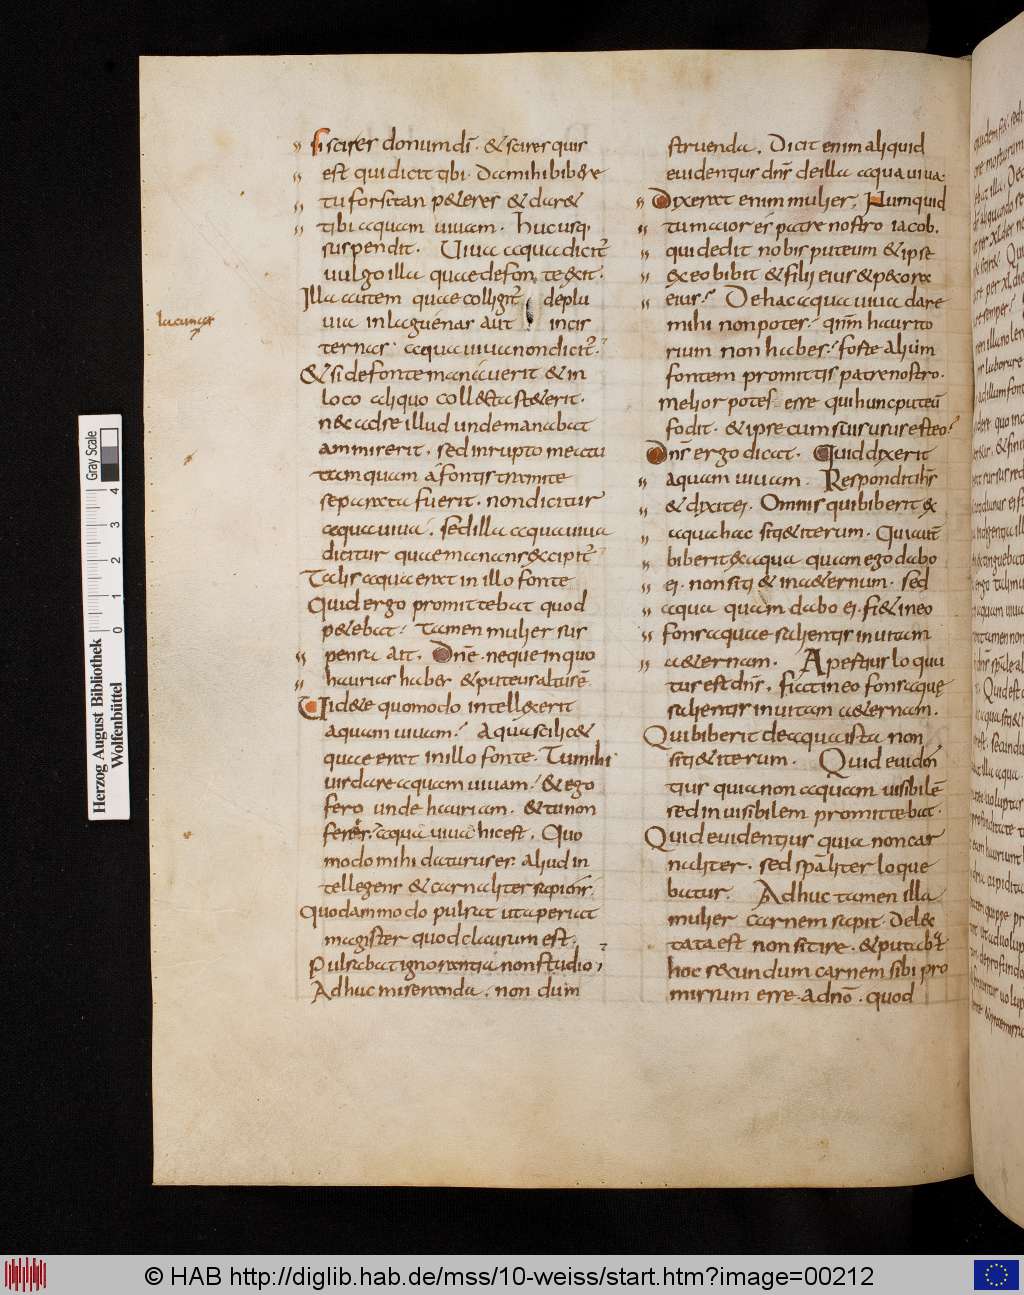 si scires donum dī. & scires quis
est qui dicit tibi. Da mihi bibere
tu forsitan p&eres & dar&
tibi aquam uiuam. Hucusq;
suspendit. Uiua aqua dicit̄
uulgo illa quae de fonte exit.
Illa autem quae colligit̄ de plu
uia in laguenas aut in cis
lacunas
ternas. aqua uiua non dicit̄.
& si de fonte manauerit & in
loco aliquo collecta st&erit.
nec ad se illud unde manabat
ammiserit. sed inrupto meatu
tamquam a fontis tramite
separata fuerit. non dicitur
aqua uiua. sed illa aqua uiua
dicitur quae manans excipit̄
Talis aqua erat in illo fonte
Quid ergo promittebat quod
p&ebat. Tamen mulier sus
pensa ait. Dnē. neque in quo
haurias habes & puteus altus ē
Uid&e quomodo intellexerit
aquam uiuam. Aqua scilic&
quae erat in illo fonte. Tu mihi
uis dare aquam uiuam. & ego
fero unde hauriam. & tu non
fers. aqua uiua hic est. Quo
modo mihi daturus es. aliud in
tellegens & carnaliter sapiens.
Quodammodo pulsat ut aperiat
magister quod clausum est.
Pulsabat ignorantia non studio.
Adhuc miseranda. non dum
struenda. Dicit enim aliquid
euidentius dn̄s de illa aqua uiua.
Dixerat enim mulier. Numquid
tu maior es patre nostro iacob.
qui dedit nobis puteum & ipse
ex eo bibit & filii eius & pecora
eius. De hac aqua uiua dare
mihi non potes. qn̄m haurito
rium non habes. foste alium
fontem promittis patre nostro.
melior potes esse qui hunc puteū
fodit. & ipse cum suis usus est eo.
Dn̄s ergo dicat. Quid dixerit
aquam uiuam. Respondit ih̄s
& dixit ei. Omnis qui biberit ex
aqua hac siti& iterum. Qui aut̄
biberit ex aqua quam ego dabo
ei. non siti& in a&ernum. sed
aqua quam dabo ei. fi& in eo
fons aquae salientis in uitam
a&ernam. Apertius locu
tus est dn̄s. fi& in eo fons aque
salientis in uitam a&ernam.
Qui biberit de aqua ista non
siti& iterum. Quid euiden
tius quia non aquam uisibilē
sed inuisibilem promittebat.
Quid euidentius quia non car
naliter. sed spāliter loque
batur. Adhuc tamen illa
mulier carnem sapit. Delec
tata est non sitire. & putabat
hoc secundum carnem sibi pro
missum esse. a dn̄o. quod
Herzog August Bibliothek
Wolfenbüttel
Gray Scale
0 1 2 3 4
© HAB http://diglib.hab.de/mss/10-weiss/start.htm?image=00212